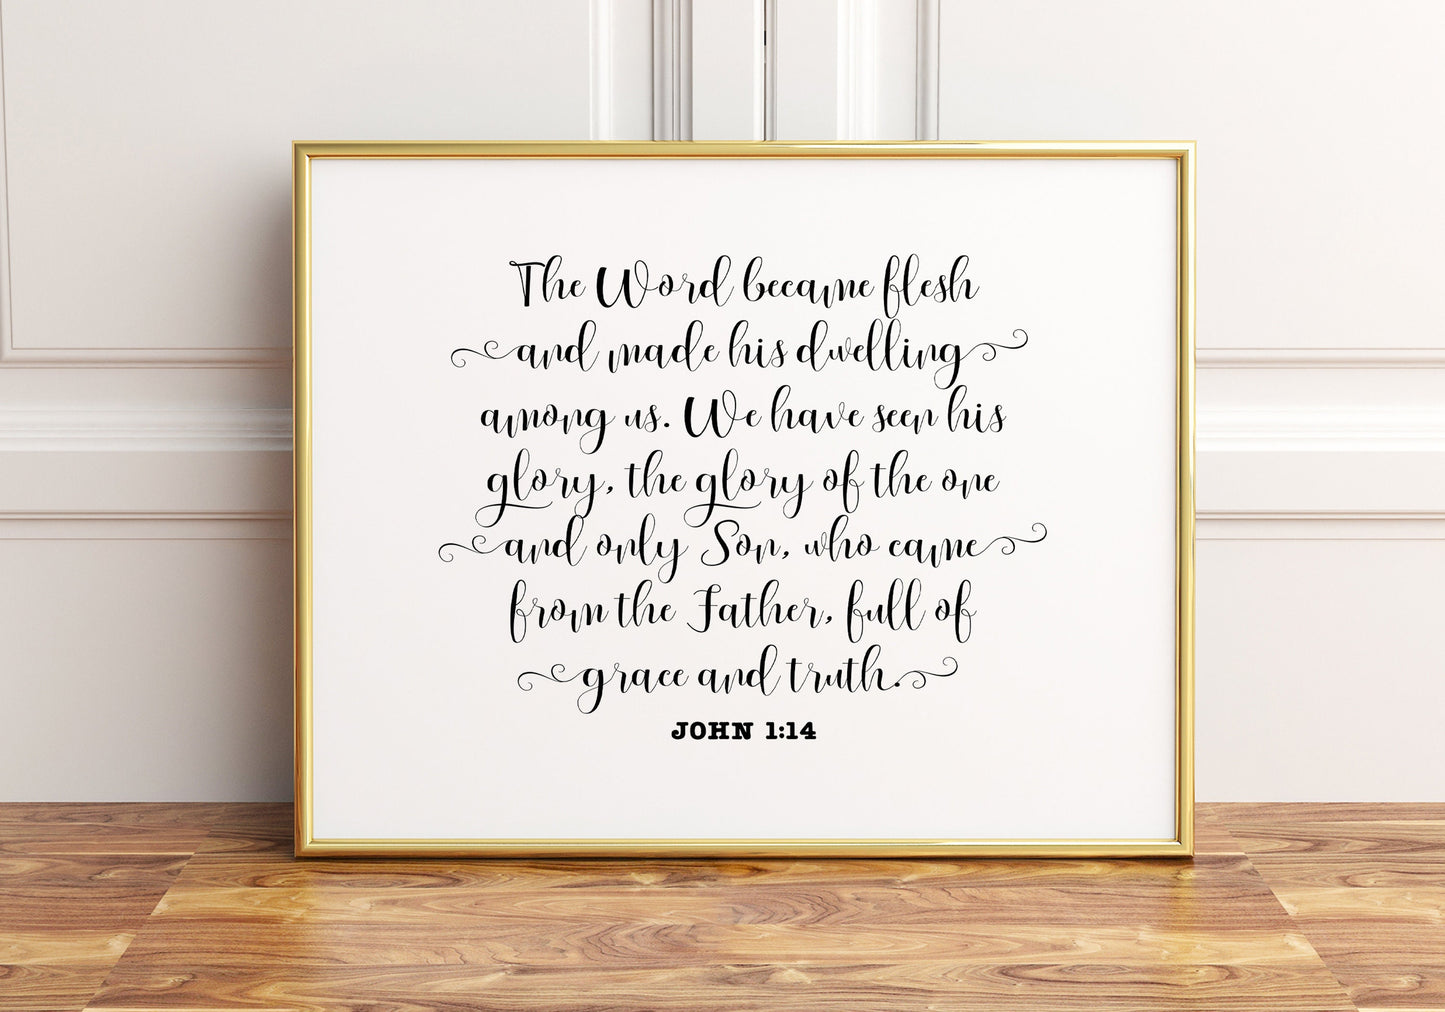 The Word became flesh
and made his dwelling
among us. We have seen his
glory, the glory of the one
and only Son, who came
from the Father, full of
grace and truth.
JOHN 1:14